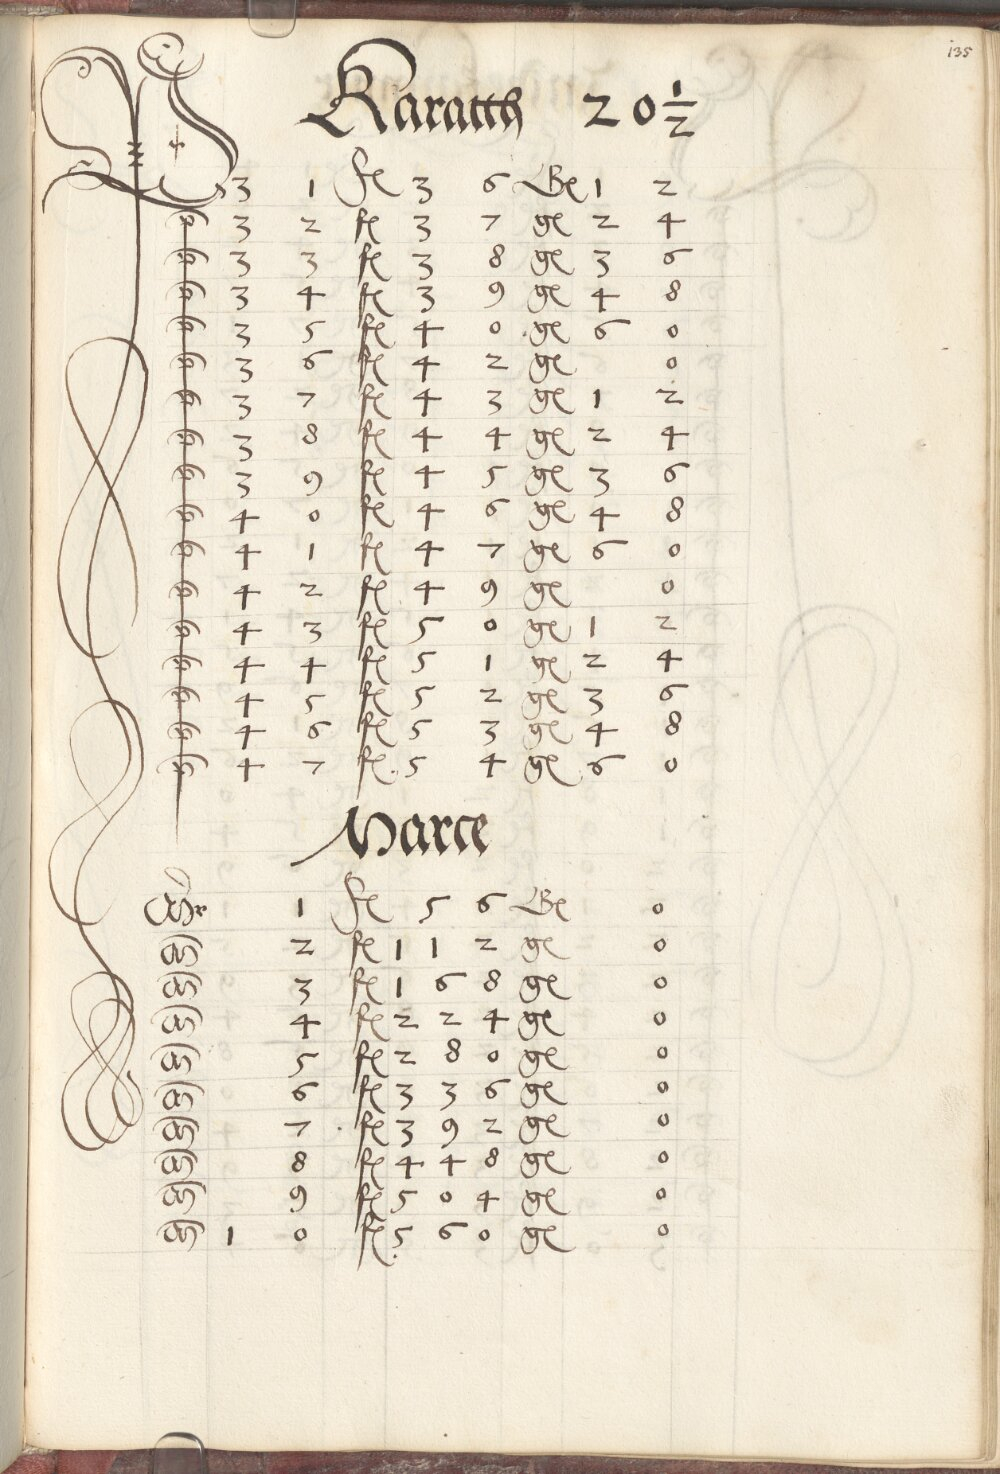 135
Karatth 20 1/2
3 1 fl 3 6 ge 1 2
3 2 fl 3 7 ge 2 4
3 3 fl 3 8 ge 3 6
3 4 fl 3 9 ge 4 8
3 5 fl 4 0 ge 6 0
3 6 fl 4 2 ge 0
3 7 fl 4 3 ge 1 2
3 8 fl 4 4 ge 2 4
3 9 fl 4 5 ge 3 6
4 0 fl 4 6 ge 4 8
4 1 fl 4 7 ge 6 0
4 2 fl 4 9 ge 0
4 3 fl 5 0 ge 1 2
4 4 fl 5 1 ge 2 4
4 5 fl 5 2 ge 3 6
4 6 fl 5 3 ge 4 8
4 7 fl. 5 4 ge 6 0
Marce
1 fl 5 6 ge 0
2 fl 1 1 2 ge 0
3 fl 1 6 8 ge 0
4 fl 2 2 4 ge 0
5 fl 2 8 0 ge 0
6 fl 3 3 6 ge 0
7 fl 3 9 2 ge 0
8 fl 4 4 8 ge 0
9 fl 5 0 4 ge 0
1 0 fl 5 6 0 ge 0